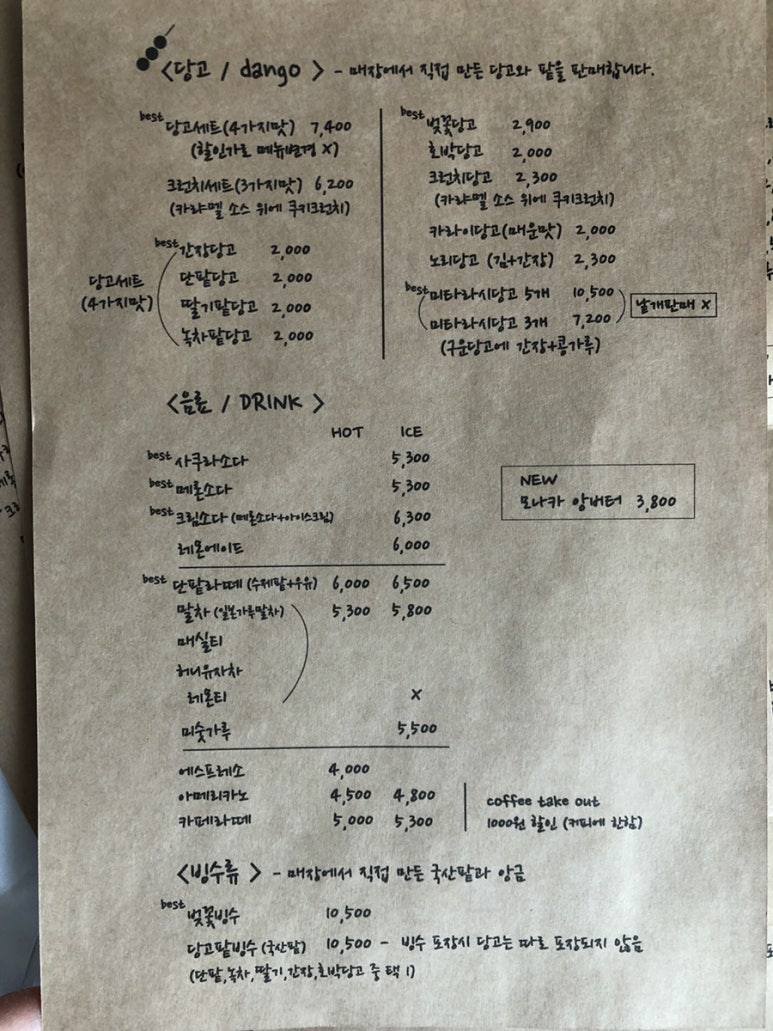 <당고 / dango > - 매장에서 직접 만든 당고와 팥을 판매합니다.
best 당고세트(4가지맛) 7,400
(할인가로 메뉴변경 X)
크런치세트(3가지맛) 6,200
(카라멜 소스 위에 쿠키크런치)
당고세트
(4가지맛)
best 간장당고 2,000
단팥당고 2,000
딸기팥당고 2,000
녹차팥당고 2,000
best 벚꽃당고 2,900
호박당고 2,000
크런치당고 2,300
(카라멜 소스 위에 쿠키크런치)
카라이당고(매운맛) 2,000
노리당고 (김+간장) 2,300
best 미타라시당고 5개 10,500
미타라시당고 3개 7,200
(구운당고에 간장+콩가루)
낱개판매 X
<음료 / DRINK >
HOT ICE
best 사쿠라소다 5,300
best 메론소다 5,300
best 크림소다 (메론소다+아이스크림) 6,300
레몬에이드 6,000
NEW
모나카 앙버터 3,800
best 단팥라떼 (수제팥+우유) 6,000 6,500
말차 (일본가루말차) 5,300 5,800
매실티
허니유자차
레몬티 X
미숫가루 5,500
에스프레소 4,000
아메리카노 4,500 4,800
카페라떼 5,000 5,300
coffee take out
1000원 할인 (커피에 한함)
<빙수류 > - 매장에서 직접 만든 국산팥과 앙금
best 벚꽃빙수 10,500
당고팥빙수 (국산팥) 10,500 - 빙수 포장시 당고는 따로 포장되지 않음
(단팥,녹차,딸기,간장,호박당고 중 택 1)